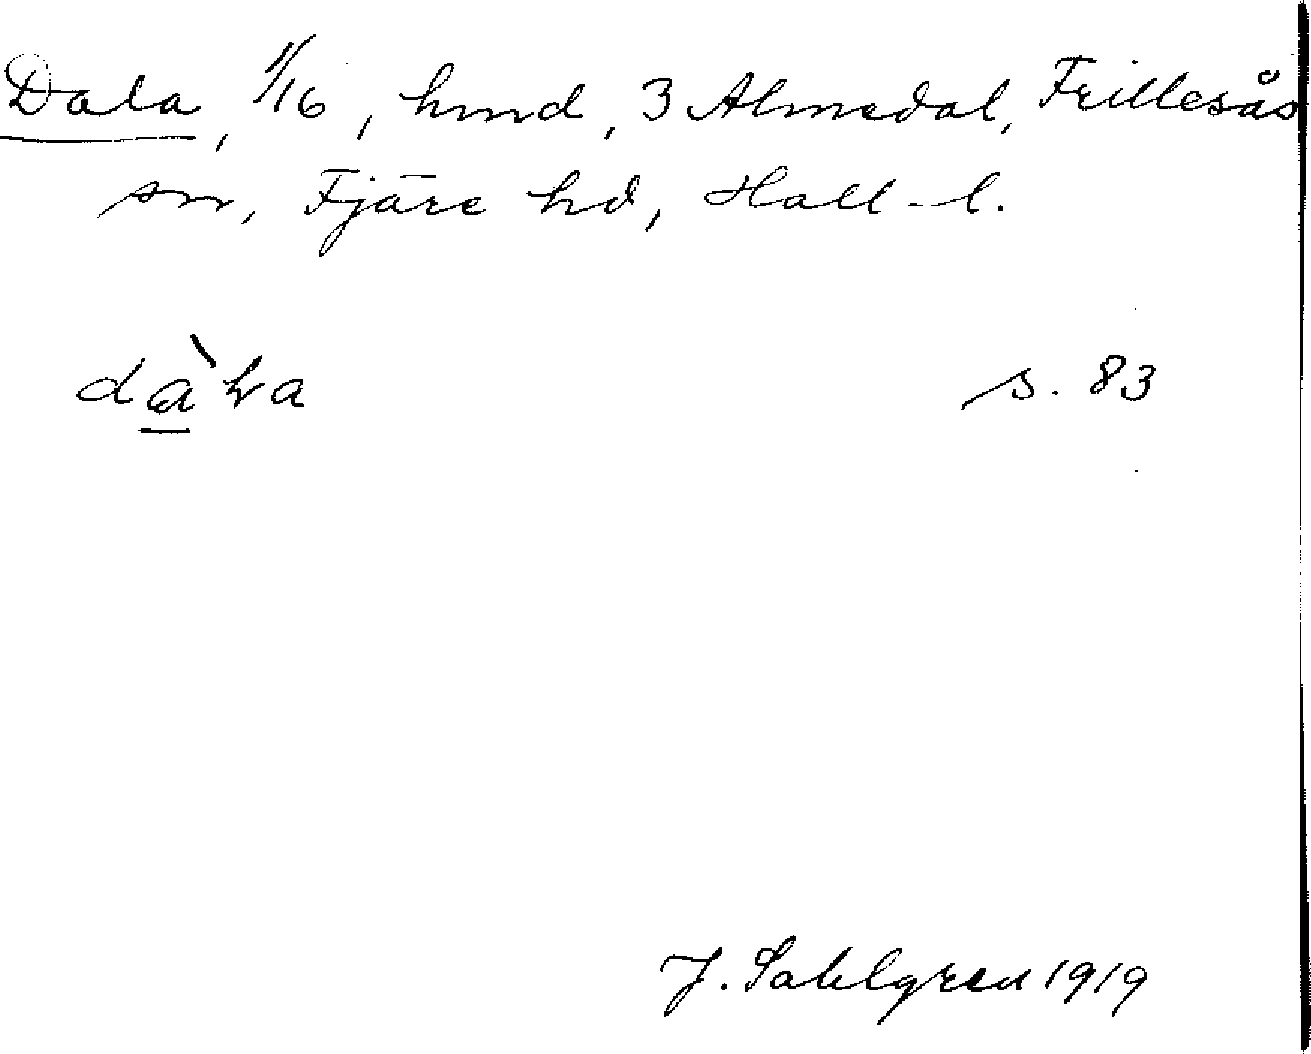 Dala, 1/16, hmd, 3 Almedal, Frillesås
sn, Fjäre hd, Hall-l.
s. 83
J. Sahlgren 1919